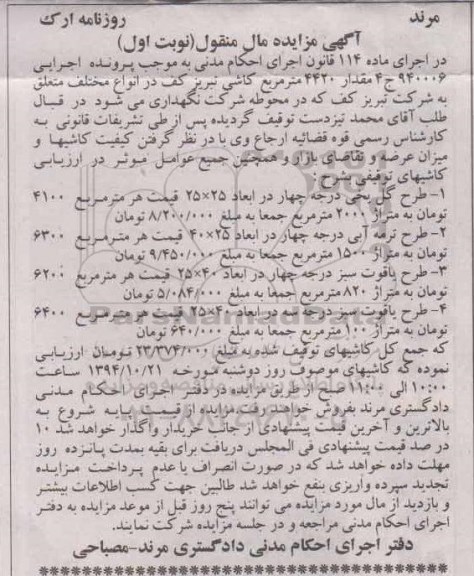 مرند روزنامه ارک
آگهی مزایده مال منقول(نوبت اول)
در اجرای ماده ۱۱۴ قانون اجرای احکام مدنی به موجب پرونده اجرایی
۹۴۰۰۰۶ ج۴ مقدار ۴۴۲۰ مترمربع کاشی تبریز کف در انواع مختلف متعلق
به شرکت تبریز کف که در محوطه شرکت نگهداری می شود در قبال
طلب آقای محمد تیزدست توقیف گردیده پس از طی تشریفات قانونی به
کارشناس رسمی قوه قضائیه ارجاع وی با در نظر گرفتن کیفیت کاشیها و
میزان عرضه و تقاضای بازار و همچنین جمیع عوامل موثر در ارزیابی
کاشیهای توقیفی بشرح:
۱- طرح گل یخی درجه چهار در ابعاد ۲۵×۲۵ قیمت هر مترمربع ۴۱۰۰
تومان به متراژ ۲۰۰۰ مترمربع جمعا به مبلغ ۸/۲۰۰/۰۰۰ تومان
۲- طرح ترمه آبی درجه چهار در ابعاد ۲۵×۴۰ قیمت هر مترمربع ۶۳۰۰
تومان به متراژ ۱۵۰۰ مترمربع جمعا به مبلغ ۹/۴۵۰/۰۰۰ تومان
۳- طرح یاقوت سبز درجه چهار در ابعاد ۴۰×۲۵ قیمت هر مترمربع ۶۲۰۰
تومان به متراژ ۸۲۰ مترمربع جمعا به مبلغ ۵/۰۸۴/۰۰۰ تومان
۴- طرح یاقوت سبز درجه سه در ابعاد ۴۰×۲۵ قیمت هر مترمربع ۶۴۰۰
تومان به متراژ ۱۰۰ مترمربع جمعا به مبلغ ۶۴۰/۰۰۰ تومان
که جمع کل کاشیهای توقیف شده به مبلغ ۲۳/۳۷۴/۰۰۰ تومان ارزیابی
نموده که کاشیهای موصوف روز دوشنبه مورخه ۱۳۹۴/۱۰/۲۱ ساعت
۱۰:۰۰ الی ۱۱:۰۰ صبح از طریق مزایده در دفتر اجرای احکام مدنی
دادگستری مرند بفروش خواهند رفت.مزایده از قیمت پایه شروع به
بالاترین و آخرین قیمت پیشنهادی از جانب خریدار واگذار خواهد شد ۱۰
در صد قیمت پیشنهادی فی المجلس دریافت برای بقیه بمدت پانزده روز
مهلت داده خواهد شد که در صورت انصراف یا عدم پرداخت مزایده
تجدید سپرده واریزی بنفع خواهد شد طالبین جهت کسب اطلاعات بیشتر
و بازدید از مال مورد مزایده می توانند پنج روز قبل از موعد مزایده به دفتر
اجرای احکام مدنی مراجعه و در جلسه مزایده شرکت نمایند.
دفتر اجرای احکام مدنی دادگستری مرند-مصباحی